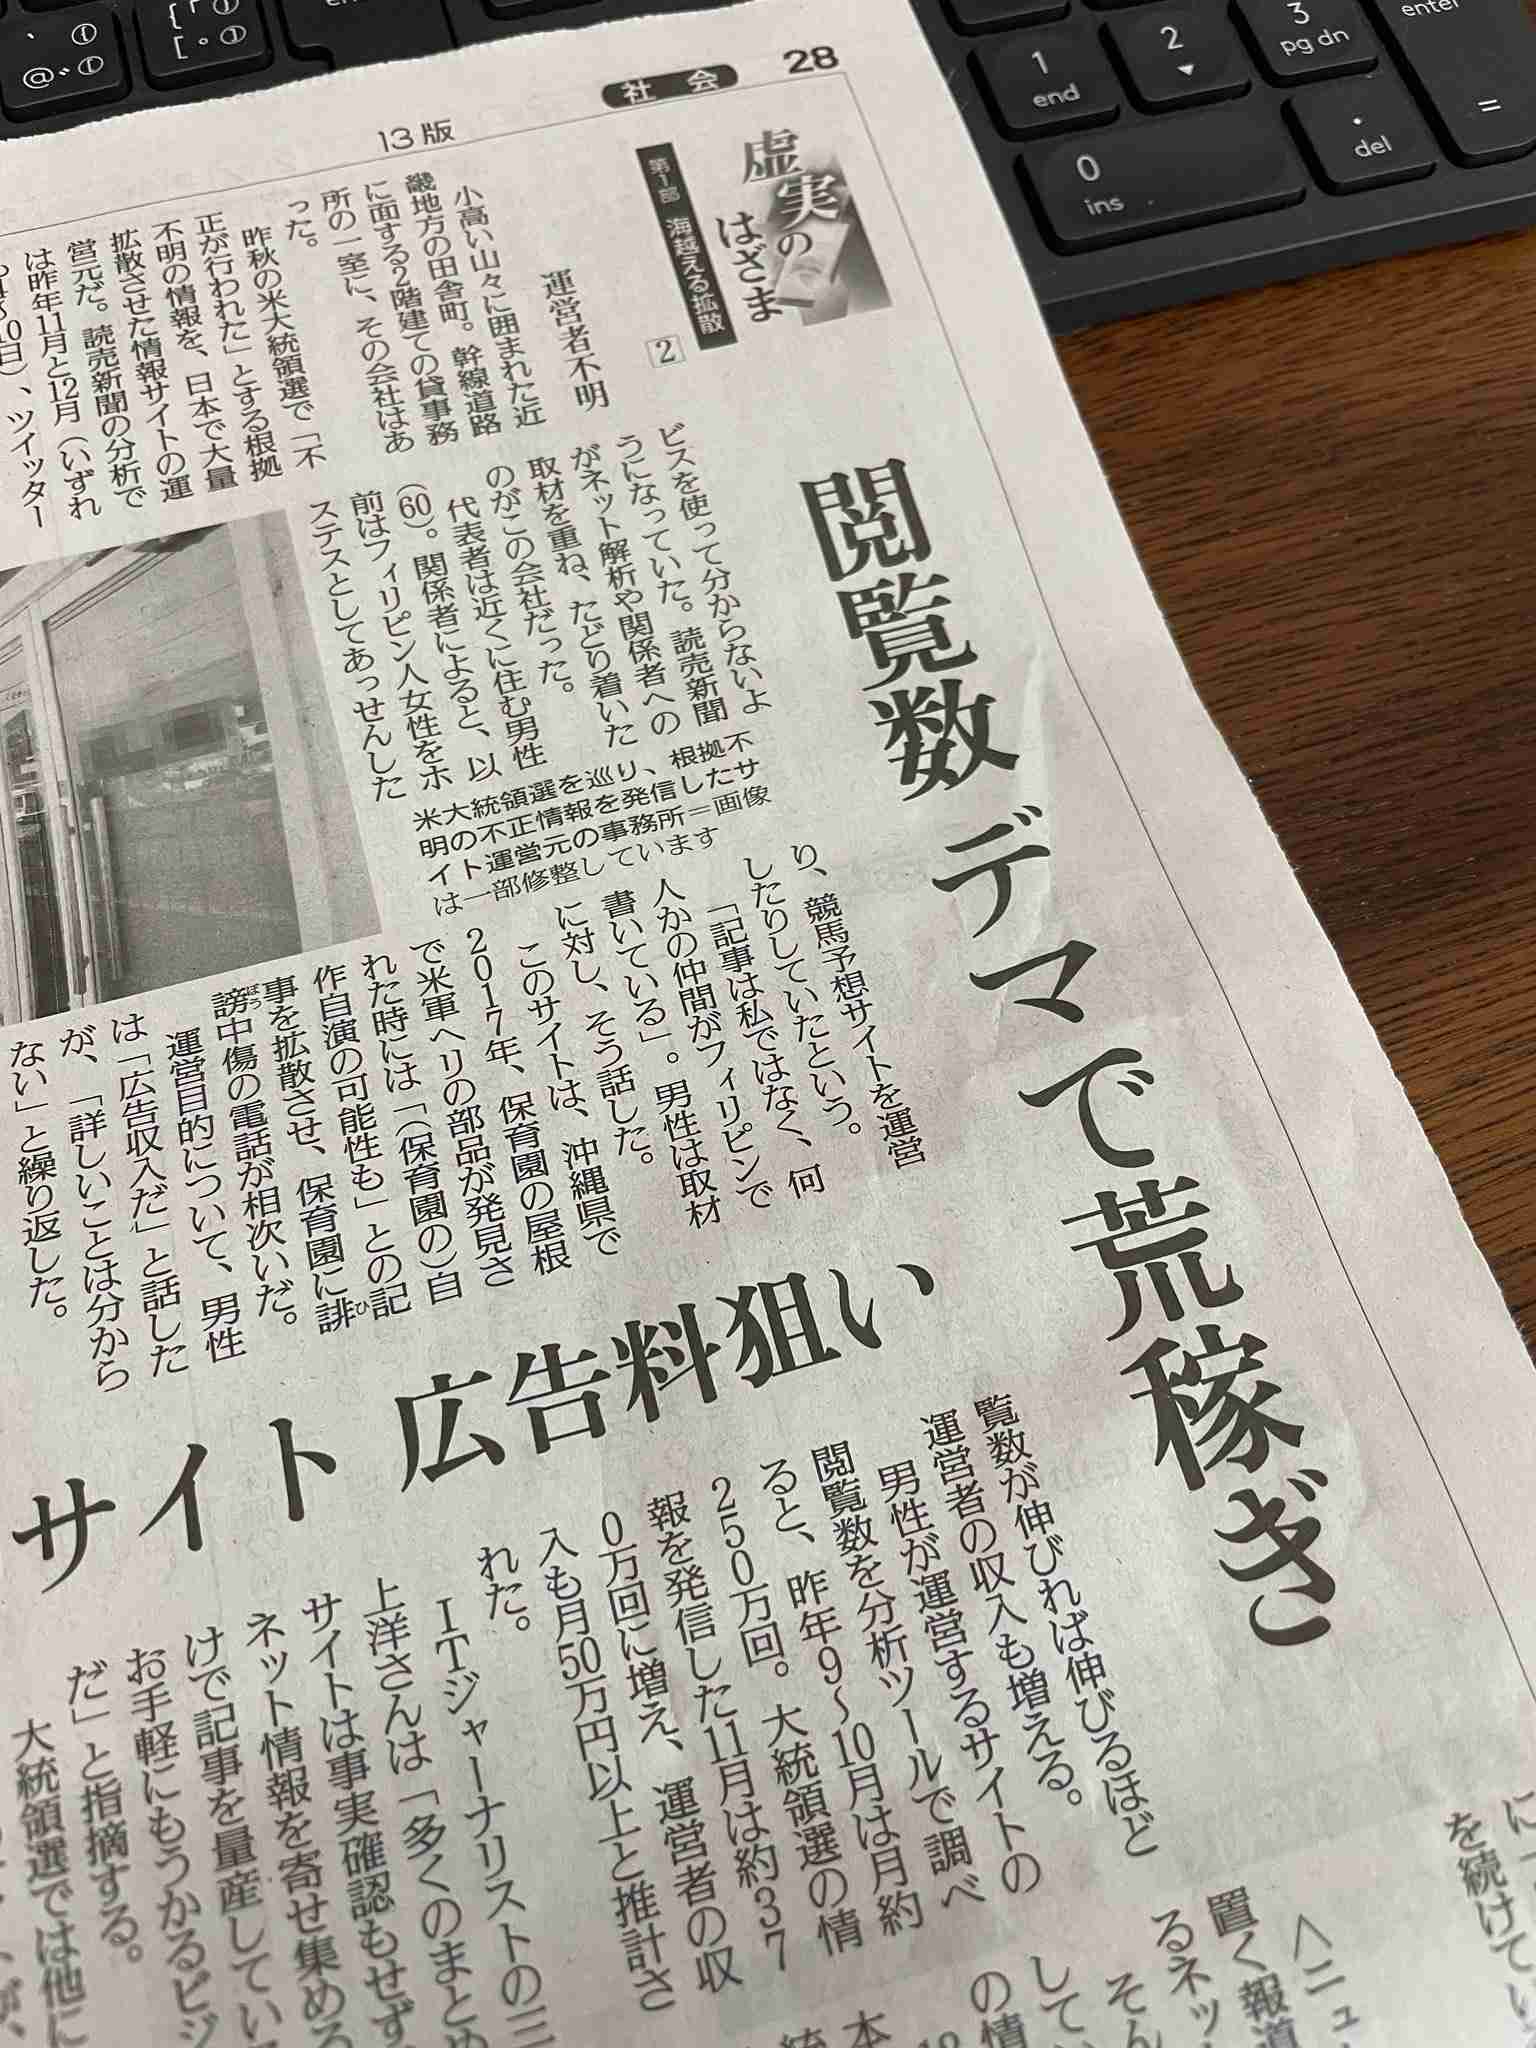 28
社会
13版
虚実のはざま
第1部 海越える拡散
2
閲覧数 デマで荒稼ぎ
サイト 広告料狙い
運営者不明
小高い山々に囲まれた近
畿地方の田舎町。幹線道路
に面する2階建ての貸事務
所の一室に、その会社はあ
った。
昨秋の米大統領選で「不
正が行われた」とする根拠
不明の情報を、日本で大量
拡散させた情報サイトの運
営元だ。読売新聞の分析で
は昨年11月と12月(いずれ
10日)、ツイッター
ビスを使って分からないよ
うになっていた。読売新聞
がネット解析や関係者への
取材を重ね、たどり着いた
のがこの会社だった。
代表者は近くに住む男性
(60)。関係者によると、以
前はフィリピン人女性をホ
ステスとしてあっせんした
米大統領選を巡り、根拠不
明の不正情報を発信したサ
イト運営元の事務所=画像
は一部修整しています
り、競馬予想サイトを運営
したりしていたという。
「記事は私ではなく、何
人かの仲間がフィリピンで
書いている」。男性は取材
に対し、そう話した。
このサイトは、沖縄県で
2017年、保育園の屋根
で米軍ヘリの部品が発見さ
れた時には「(保育園の)自
作自演の可能性も」との記
事を拡散させ、保育園に誹ひ
謗ぼう中傷の電話が相次いだ。
運営目的について、男性
は「広告収入だ」と話した
が、「詳しいことは分から
ない」と繰り返した。
覧数が伸びれば伸びるほど
運営者の収入も増える。
男性が運営するサイトの
閲覧数を分析ツールで調べ
ると、昨年9〜10月は月約
250万回。大統領選の情
報を発信した11月は約37
0万回に増え、運営者の収
入も月50万円以上と推計さ
れた。
ITジャーナリストの三
上洋さんは「多くのまとめ
サイトは事実確認もせず
ネット情報を寄せ集める
けで記事を量産してい
お手軽にもうかるビジ
だ」と指摘する。
大統領選では他に
を続けてい
〈ニュ
置く報道
るネッ
そん
してい
の情
本
統
@
[
1
end
2
3
pg dn
enter
0
ins
.
del
=